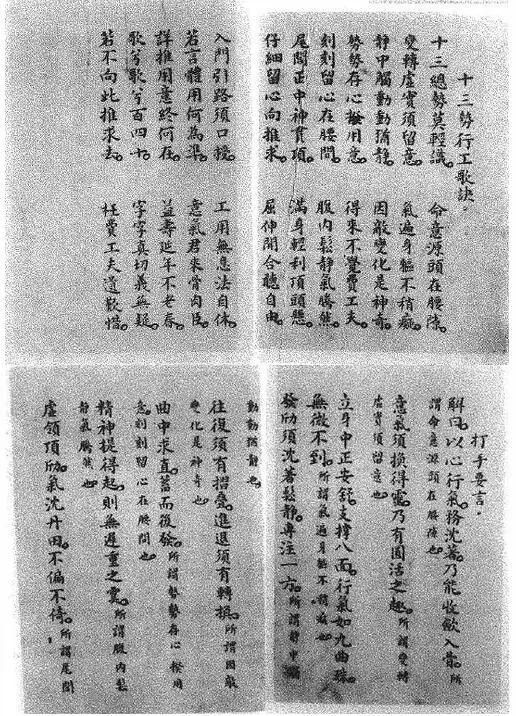 十三勢行工歌訣。
十三總勢莫輕識。命意源頭在腰隙。
變轉虛實須留意。氣遍身軀不稍癡。
靜中觸動動猶靜。因敵變化是神奇。
勢勢存心揆用意。得來不覺費工夫。
刻刻留心在腰間。腹內鬆靜氣騰然。
尾閭正中神貫頂。滿身輕利頂頭懸。
仔細留心向推求。屈伸開合聽自由。
入門引路須口授。工用無息法自休。
若言體用何為準。意氣君來骨肉臣。
詳推用意終何在。益壽延年不老春。
歌兮歌兮百四十。字字真切義無疑。
若不向此推求去。枉費工夫遺歎惜。
打手要言。
解曰。以心行氣。務沈著。乃能收斂入骨。所
謂命意源頭在腰隙也。
意氣須換得靈。乃有圓活之趣。所謂變轉
虛實須留意也。
立身中正安舒。支撐八面。行氣如九曲珠。
無微不到。所謂氣遍身軀不稍癡也。
發勁須沈著鬆靜。專注一方。所謂靜中觸
動動猶靜也。
往復須有摺疊。進退須有轉換。所謂因敵
變化是神奇也。
曲中求直。蓄而後發。所謂勢勢存心揆用
意。刻刻留心在腰間也。
精神提得起。則無遲重之虞。所謂腹內鬆
靜氣騰然也。
虛領頂勁。氣沈丹田。不偏不倚。所謂尾閭